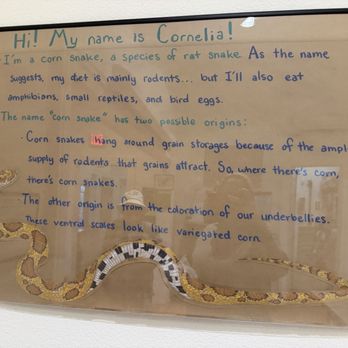 Hi! My name is Cornelia!
I'm a corn snake, a species of rat snake. As the name
suggests, my diet is mainly rodents... but I'll also eat
amphibians, small reptiles, and bird eggs.
The name "corn snake" has two possible origins:
· Corn snakes hang around grain storages because of the ampl
supply of rodents that grains attract. So, where there's corn,
there's corn snakes.
· The other origin is from the coloration of our underbellies.
These ventral scales look like variegated corn.